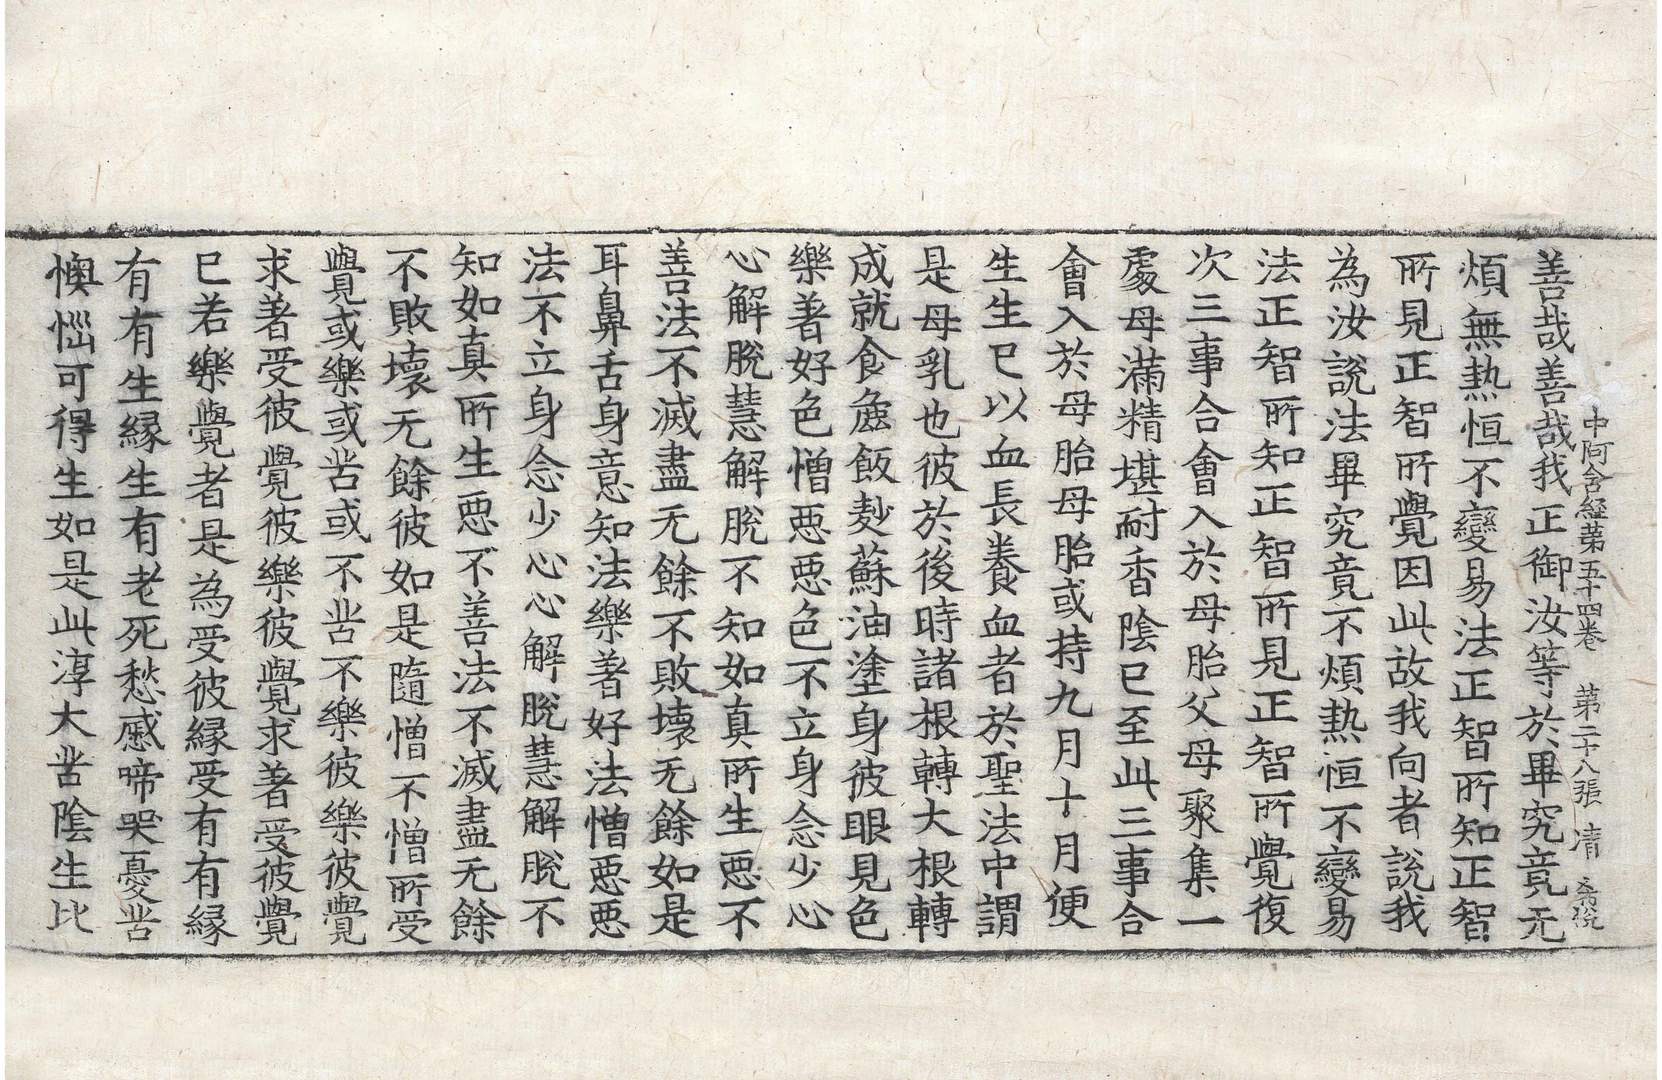 中阿含經第五十四卷 第二十八張 清
善哉善哉我正御汝等於畢究竟无
煩無熱恒不變易法正智所知正智
所見正智所覺因此故我向者說我
為汝說法畢究竟不煩熱恒不變易
法正智所知正智所見正智所覺復
次三事合會入於母胎父母聚集一
處母滿精堪耐香陰已至此三事合
會入於母胎母胎或持九月十月便
生生已以血長養血者於聖法中謂
是母乳也彼於後時諸根轉大根轉
成就食麁飯麨蘇油塗身彼眼見色
樂著好色憎惡惡色不立身念少心
心解脫慧解脫不知如真所生惡不
善法不滅盡无餘不敗壞无餘如是
耳鼻舌身意知法樂著好法憎惡惡
法不立身念少心心解脫慧解脫不
知如真所生惡不善法不滅盡无餘
不敗壞无餘彼如是隨憎不憎所受
覺或樂或苦或不苦不樂彼樂彼覺
求著受彼覺彼樂彼覺求著受彼覺
已若樂覺者是為受彼緣受有有緣
有有生緣生有老死愁慼啼哭憂苦
懊惱可得生如是此淳大苦陰生比